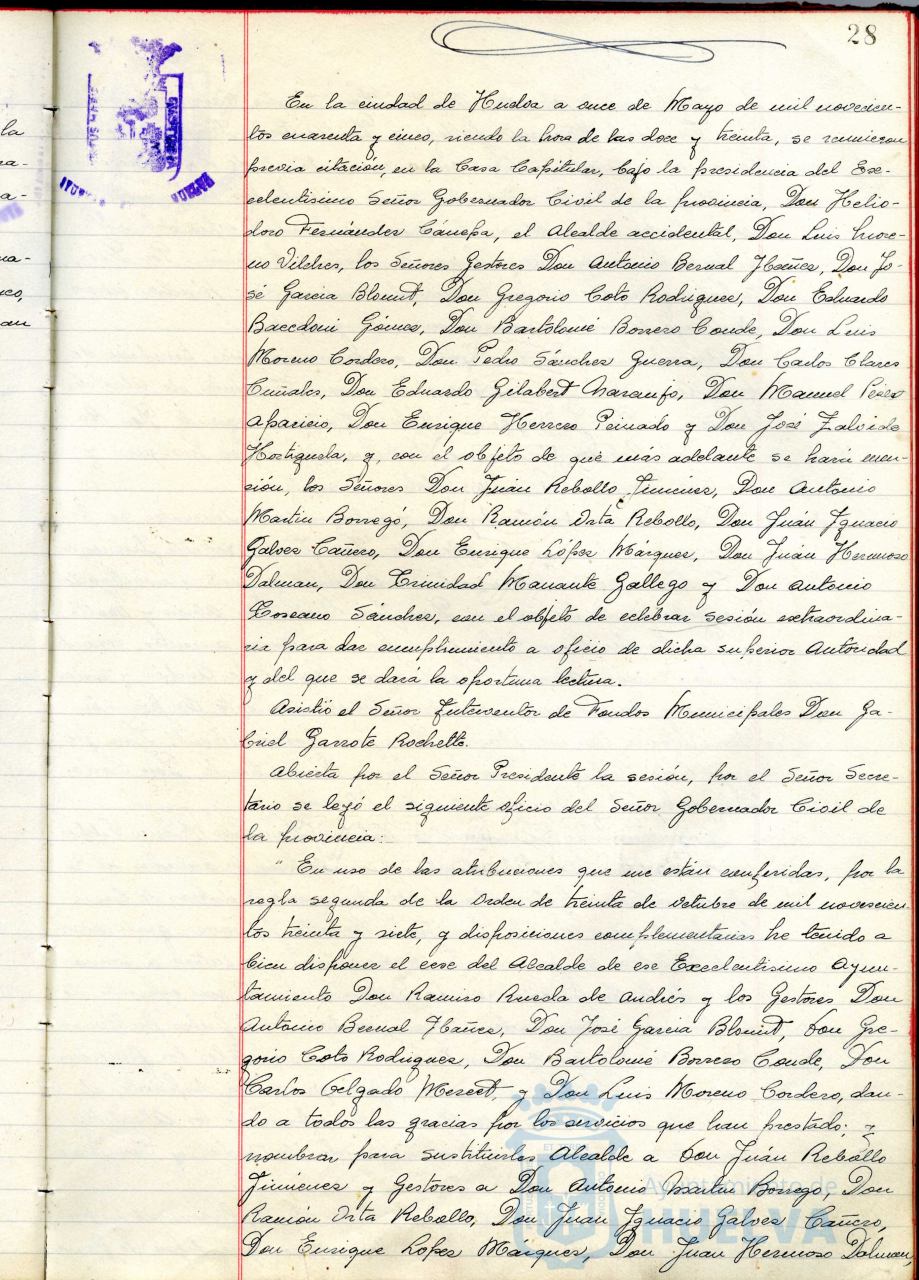 28
En la ciudad de Huelva a once de Mayo de mil novecien-
tos cuarenta y cinco, siendo la hora de las doce y treinta, se reunieron
previa citación, en la Casa Capitular, bajo la presidencia del Ex-
celentísimo Señor Gobernador Civil de la provincia, Don Helio-
doro Fernández Cánepa, el Alcalde accidental, Don Luis More-
no Vilches, los Señores Gestores Don Antonio Bernal Ibañez, Don Jo-
sé Garcia Blount, Don Gregorio Coto Rodriguez, Don Eduardo
Baccdoni Gómez, Don Bartolomé Borrero Conde, Don Luis
Moreno Cordero, Don Pedro Sánchez Guerra, Don Carlos Clares
Don Eduardo Gilabert Naranjo, Don Manuel Pérez
Aparicio, Don Enrique Herrero Peinado y Don José Zalvide
Hortiguela, y, con el objeto de que más adelante se hará men-
ción, los Señores Don Juán Rebollo Jimenez, Don Antonio
Martin Borregó, Don Ramón Orta Rebollo, Don Juán Ignacio
Galvez Cañero, Don Enrique López Márquez, Don Juán Hermoso
Dalman, Don Trinidad Manante Gallego y Don Antonio
Toscano Sánchez, con el objeto de celebrar sesión extraordina-
ria para dar cumplimiento a oficio de dicha superior Autoridad
y del que se dara la oportuna lectura.
Asistió el Señor Interventor de Fondos Municipales Don Ga-
briel Garrote Rochette.
Abierta por el Señor Presidente la sesión, por el Señor Secre-
tario se leyó el siguiente oficio del Señor Gobernador Civil de
la provincia:
" En uso de las atribuciones que me están conferidas, por la
regla segunda de la Orden de treinta de Octubre de mil novecien-
tos treinta y siete, y disposiciones complementarias he tenido a
bien disponer el cese del Alcalde de ese Excelentísimo Ayun-
tamiento Don Ramiro Rueda de Andrés y los Gestores Don
Antonio Bernal Ibañez, Don José Garcia Blount, Don Gre-
gorio Coto Rodriguez, Don Bartolomé Borrero Conde, Don
Carlos Delgado y Don Luis Moreno Cordero, dan-
do a todos las gracias por los servicios que han prestado; y
nombrar para sustituirles Alcalde a Don Juán Rebollo
Jiménez y Gestores a Don Antonio Martin Borrego, Don
Ramón Orta Rebollo, Don Juan Ignacio Galvez Cañero,
Don Enrique Lopez Márquez, Don Juan Hermoso Dalman,
Ayuntamiento de
HUELVA